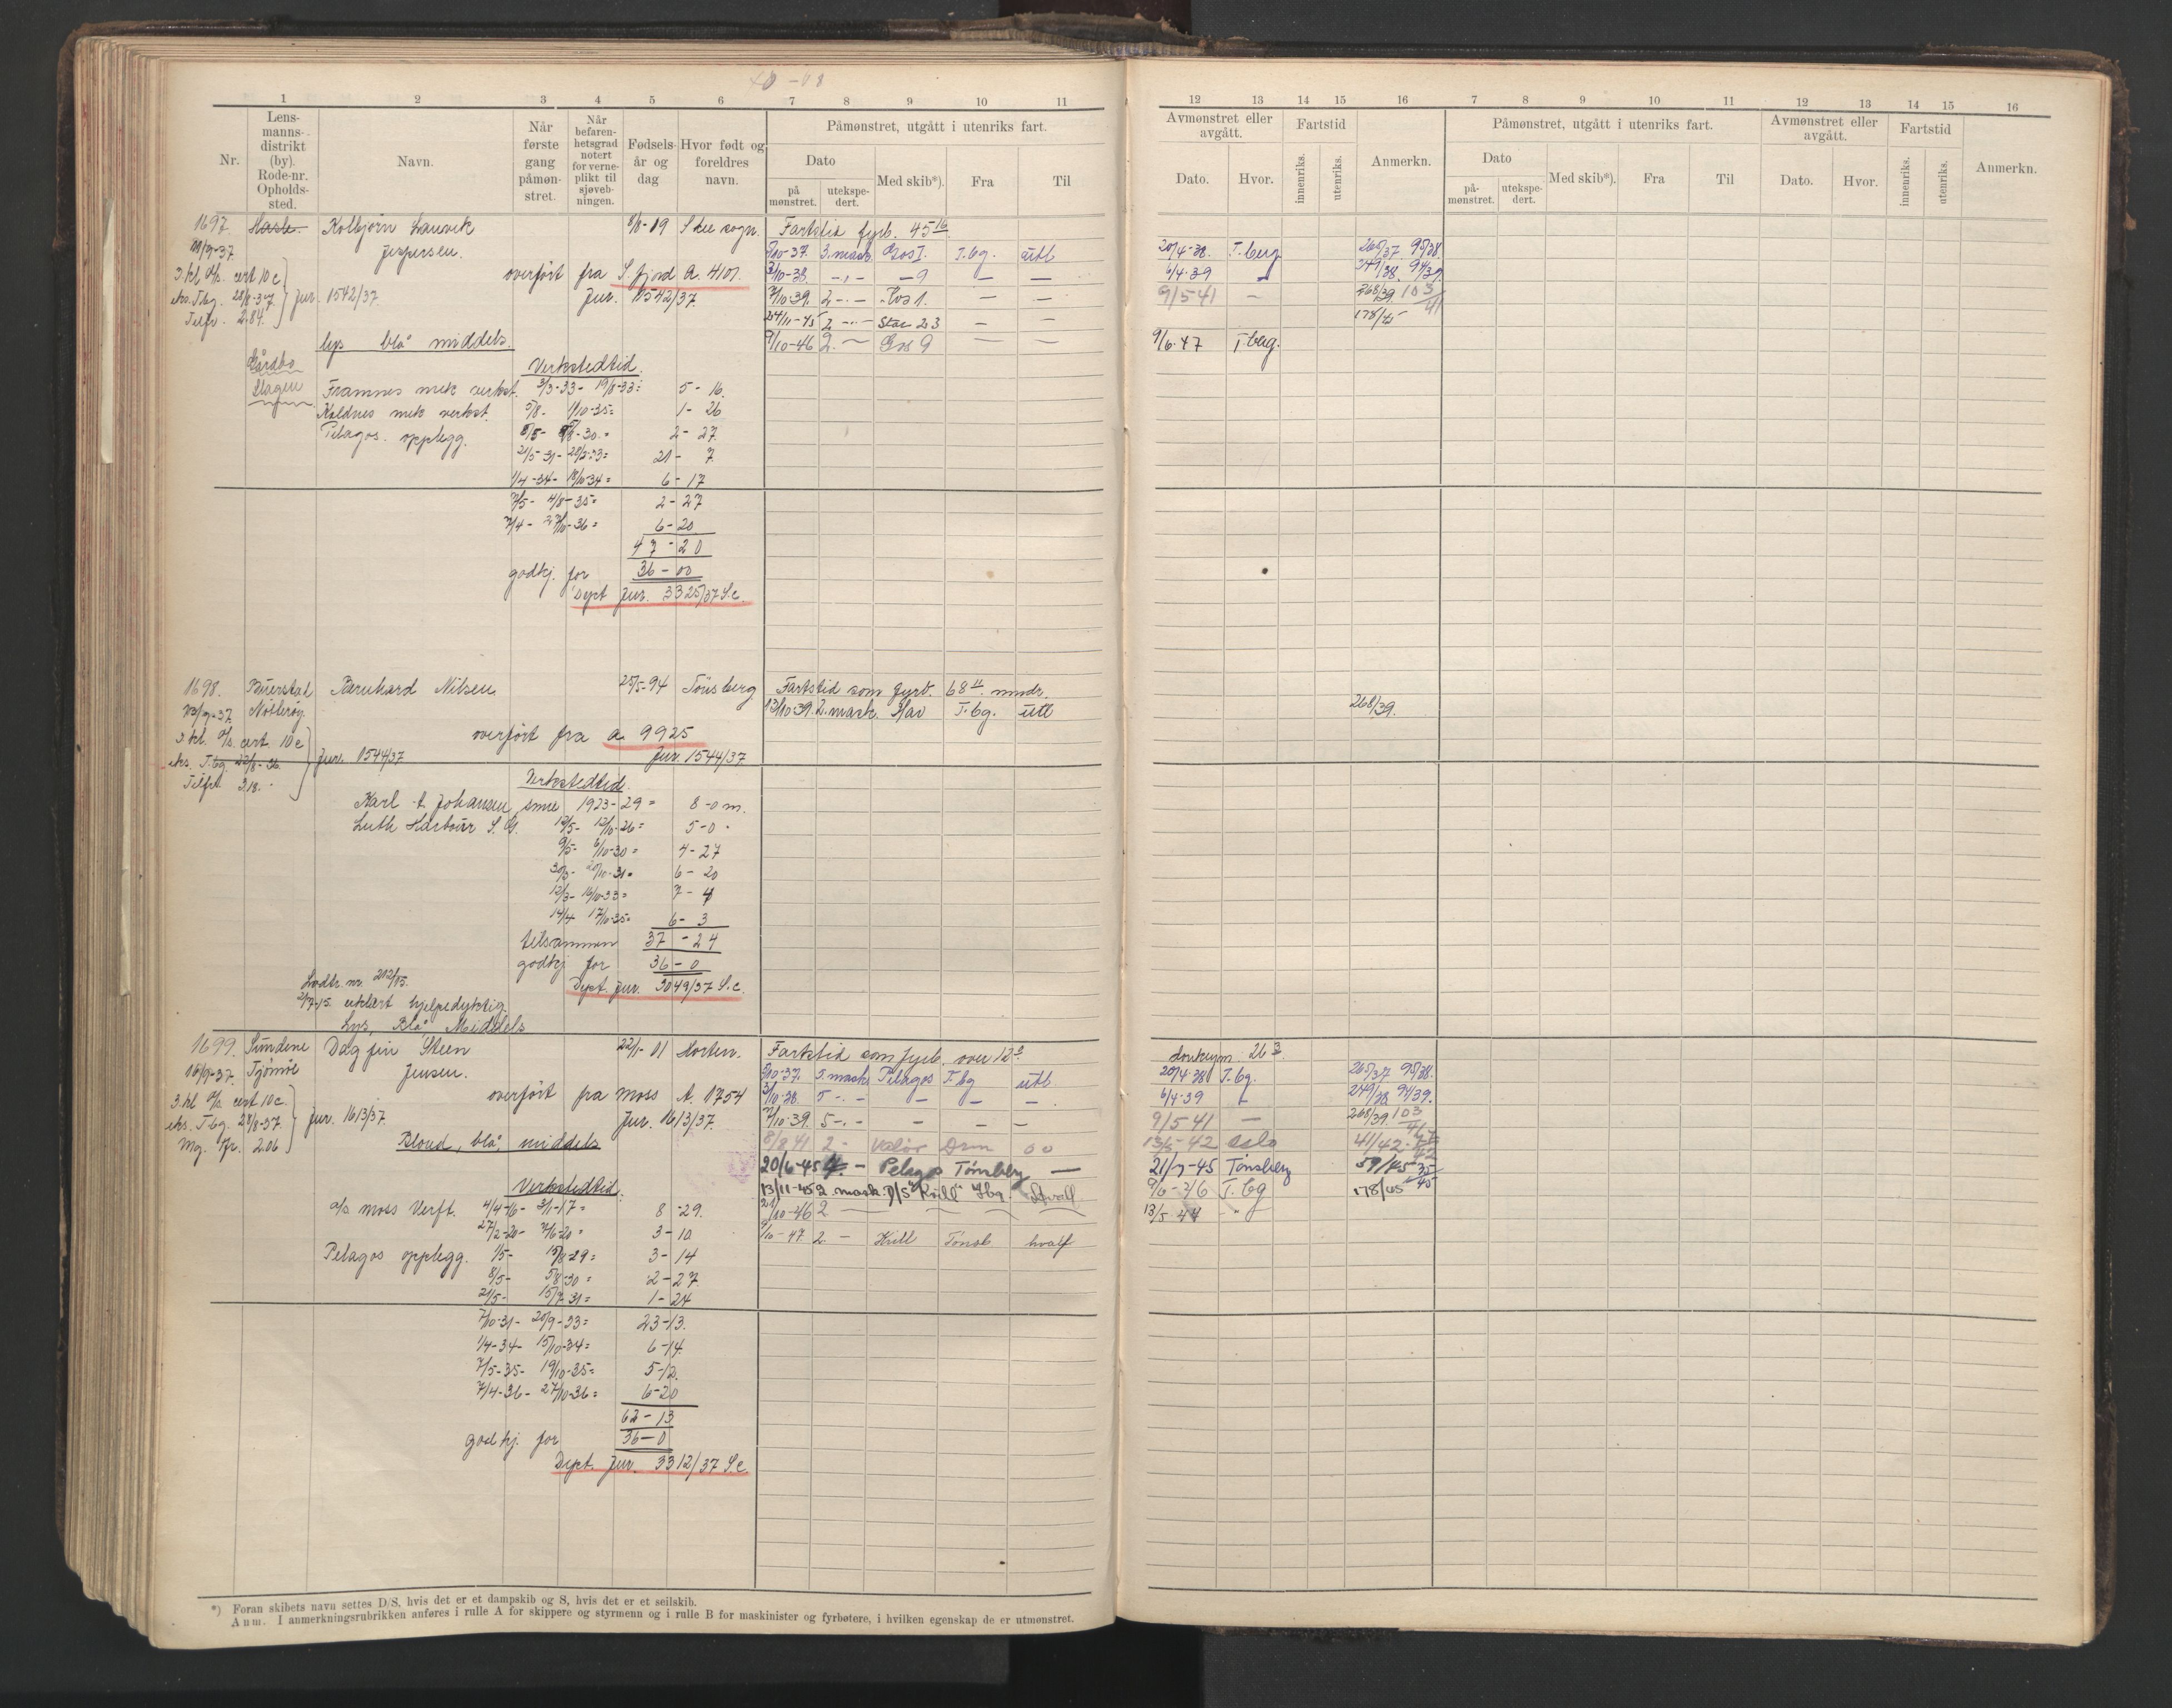 1 2 3 4 5 6 7 8 9 10 11
Nr.
Lens-
manns-
distrikt
(by).
Rode-nr.
Opholds-
sted.
Navn.
Når
første
gang
påmøn-
stret.
Når
befaren-
hetsgrad
notert
for verne-
plikt til
sjøveb-
ningen.
Fødsels-
år og
dag
Hvor født og
foreldres
navn.
Påmønstret, utgått i utenriks fart.
Dato
på
mønstret.
utekspe-
dert.
Med skib*).
Fra
Til
1697. Hasle. Kolbjørn Lauvik 8/8-09 Skee sogn. Fartstid fyrb. 45 16
Jespersen. 5/10-37. 3. mask. Gos I. T.bg. utl
3 kl. a/s. cert 10 c overført fra S.fjord A. 4101. 3/10-38 -"- - 9 — —
eks. T.bg. 28/8-37. Jur. 1542/37. Jur. 1542/37. 7/10 39. 2 -"- Gos 1. — —
Tilfr. 2.84. 24/11-45 2 -"- Star 23 — —
lys blå middels. 7/10-46 2. — Gos 9 — —
Gårdbo
Slagen
Verkstedtid.
Framnes mek verkst. 3/3-33- 19/8-33= 5-16.
Kaldnes mek verkst. 5/8- 1/10-35= 1-26
Pelagos. opplegg. 8/5- 5/8-30.= 2-27.
21/5-31- 28/2-33= 21-7.
1/4-34- 18/10-34= 6-17
7/5- 4/8-35= 2-27
7/4- 27/10-36= 6-20
47-20
godkj. for 36-00
Dept Jur. 3325/37 S.c.
1698. Bernhard Nilsen 25/5-94 Tønsberg Fartstid som fyrb. 68 mndr.
Nøtterøy. 13/10 39. 2. mask. T.bg. utl
3 kl. a/s. cert. 10 c overført fra A. 9925
Jur. 1544/37 Jur. 1544/37
Tilfr. 3.18.
Verkstedtid.
Karl A Johansen smie 1923-29= 8-0 m.
12/5- 12/10-26= 5-0
9/5- 6/10-30= 4-27
30/3- 20/10-31= 6-20
12/3- 16/10-33= 7-4
14/4 17/10-35= 6-3
tilsammen 37-24
godkj for 36-0
Dept. Jur. 3049/37 S.c.
Lodtr. nr. 212/15.
erklært hjelpedyktig.
Lys, Blå Middels
1699. Sundene Dagfin Steen 22/1-01 Horten. Fartstid som fyrb. over 12
Tjømø Jensen. 5/10-37. 5. mask. Pelagos T.bg utl
3. kl a/s cert 10c. overført fra Moss A. 1754 3/10-38. 5 -"- — — —
eks. T.bg. 28/8-37. Jur. 1613/37. Jur. 1613/37. 7/10-39. 5 -"- — — —
Mg. fr. 2.06 Blond, blå, middels 8/8 41 2 - Valør Drm
20/6-45 4. - Pelagos Tønsberg —
Verkstedtid. 13/11-45 2. mask. D/S "Krill" Tbg. Hvalf.
a/s Moss Verft. 4/4-16- 3/1-17= 8-29. 21/10-46 2 — — — —
27/2-20- 7/6-20= 3-10 7/10-47. 2. — Krill Tønsb hvalf
Pelagos opplegg. 1/5- 15/8-29= 3-14
8/5- 5/8-30= 2-27
21/5- 15/7-31= 1-24
7/10-31- 20/9-33= 23-13.
1/4-34- 15/10-34= 6-14.
7/5-35- 19/10-35= 5-12.
7/4-36- 27/10-36= 6-20
62-13
godkj. for 36-0
Dept. Jur. 3312/37 S.c
*) Foran skibets navn settes D/S, hvis det er et dampskib og S, hvis det er et seilskib.
Anm. I anmerkningsrubrikken anføres i rulle A for skippere og styrmenn og i rulle B for maskinister og fyrbøtere, i hvilken egenskap de er utmønstret.
12 13 14 15 16 7 8 9 10 11 12 13 14 15 16
Avmønstret eller
avgått.
Dato.
Hvor.
Fartstid
innenriks.
utenriks.
Anmerkn.
Påmønstret, utgått i utenriks fart.
Dato
på-
mønstret.
utekspe-
dert.
Med skib*).
Fra
Til
Avmønstret eller
avgått.
Dato.
Hvor.
Fartstid
innenriks.
utenriks.
Anmerkn.
20/4-38. T.berg 265/37 95/38.
6/4-39 249/38. 94/39.
9/5 41 — 268/39. 103/41
178/45
9/6-47 T.berg.
268/39.
20/4-38 T.bg. 265/37 95/38.
6/4-39 249/38 94/39.
9/5 41 — 268/39. 103/41
13/5-42 Oslo 41/42
21/7-45 Tønsberg 59/45
9/6-46 T.bg 178/45
13/5-47 -"-